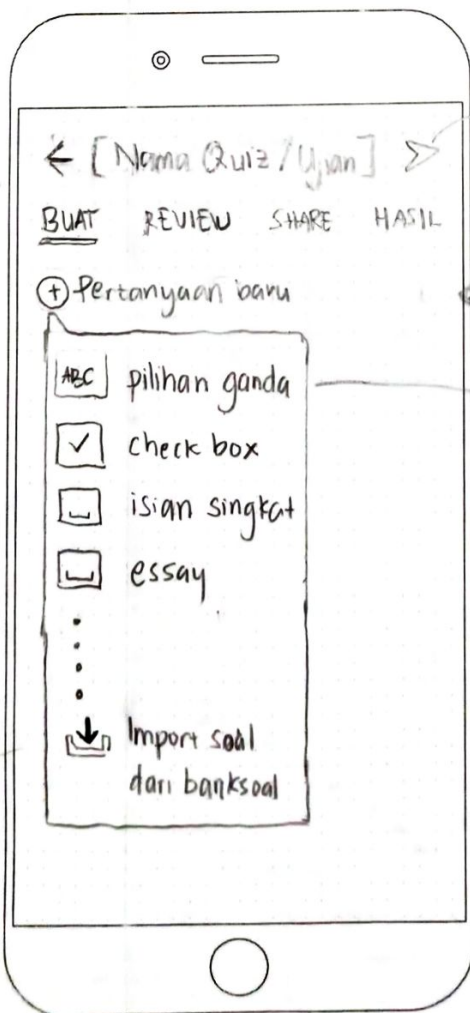 ← [Nama Quiz / Ujian]
BUAT REVIEW SHARE HASIL
+ Pertanyaan baru
ABC pilihan ganda
check box
isian singkat
essay
Import soal
dari banksoal